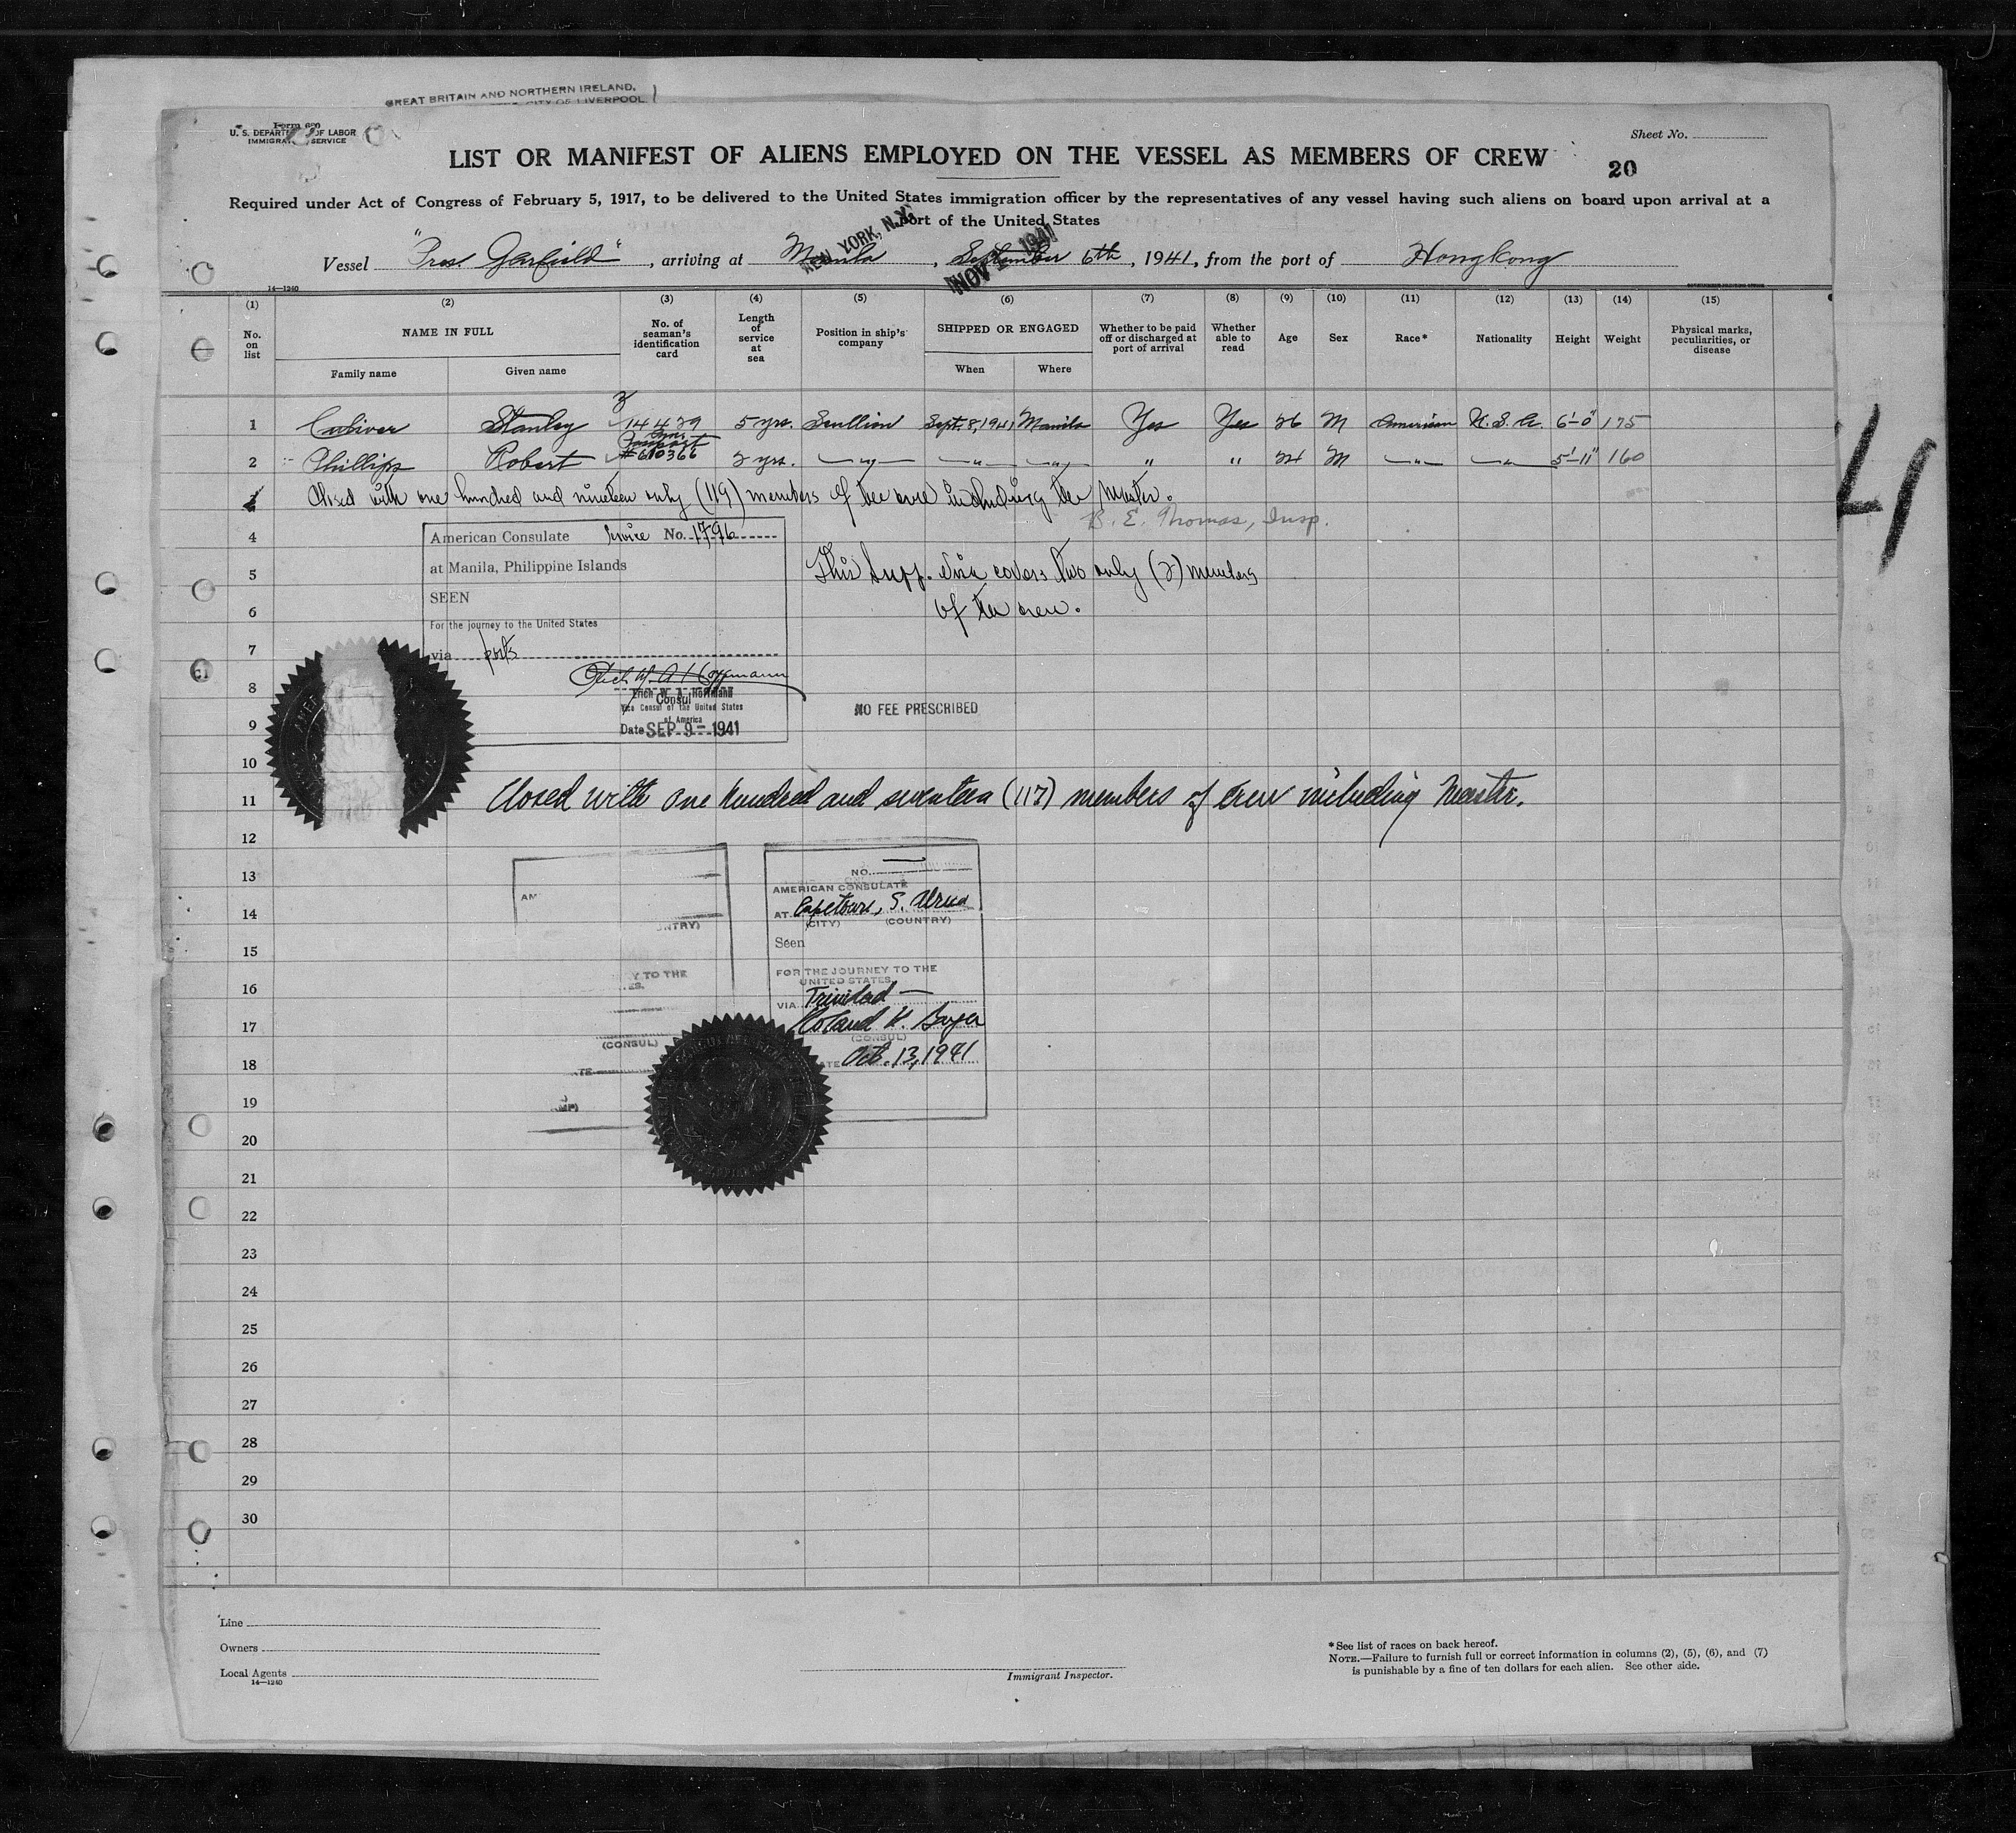 GREAT BRITAIN AND NORTHERN IRELAND.
CITY OF LIVERPOOL
Form 680
U. S. DEPARTMENT OF LABOR
IMMIGRATION SERVICE
Sheet No.
LIST OR MANIFEST OF ALIENS EMPLOYED ON THE VESSEL AS MEMBERS OF CREW
20
Required under Act of Congress of February 5, 1917, to be delivered to the United States immigration officer by the representatives of any vessel having such aliens on board upon arrival at a
port of the United States
NEW YORK, N.Y.
NOV 1941
Vessel "Pres Garfield", arriving at Manila, September 6th, 1941, from the port of Hongkong
14—1240
(1) (2) (3) (4) (5) (6) (7) (8) (9) (10) (11) (12) (13) (14) (15)
No. on list
NAME IN FULL
Family name
Given name
No. of seaman's identification card
Length of service at sea
Position in ship's company
SHIPPED OR ENGAGED
When
Where
Whether to be paid off or discharged at port of arrival
Whether able to read
Age
Sex
Race*
Nationality
Height
Weight
Physical marks, peculiarities, or disease
1 Stanley 14429 5 yrs. Scullion Sept. 8, 1941 Manila Yes Yes 26 M American U.S.A. 6'-0" 175
2 Phillips Robert Passport #610366 2 yrs. —"— —"— —"— " " 24 M —"— —"— 5'-11" 160
3 Closed with one hundred and nineteen only (119) members of the crew including the Master.
B. E. Thomas, Insp.
4
American Consulate Service No. 1796
at Manila, Philippine Islands
SEEN
For the journey to the United States
via ports
Erich W. A. Hoffmann
Erich W. A. Hoffmann
Consul
Vice Consul of the United States
of America
Date SEP - 9 - 1941
5 This Supp. visa covers two only (2) members
6 of the crew.
7
8
NO FEE PRESCRIBED
9
10
11 Closed with one hundred and seventeen (117) members of crew including Master.
12
13
14
15
16
17
18
19
20
21
22
23
24
25
26
27
28
29
30
AM
NTRY)
Y TO THE
ES.
(CONSUL)
NO.
AMERICAN CONSULATE
AT Capetown, S. Africa
(CITY) (COUNTRY)
Seen
FOR THE JOURNEY TO THE
UNITED STATES
VIA Trinidad —
Roland K.
(CONSUL)
DATE Oct. 13, 1941
Line
Owners
Local Agents
14—1240
Immigrant Inspector.
*See list of races on back hereof.
NOTE.—Failure to furnish full or correct information in columns (2), (5), (6), and (7)
is punishable by a fine of ten dollars for each alien. See other side.